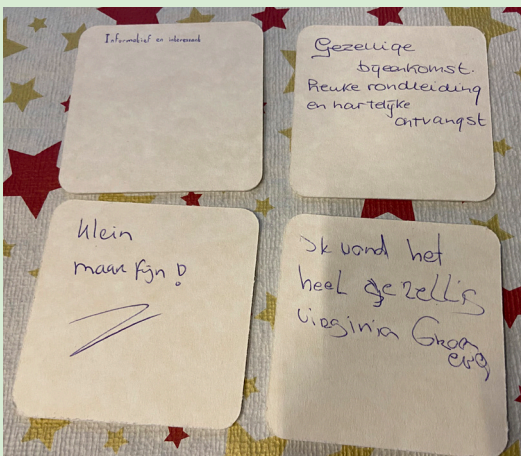 Informatief en interessant
Gezellige
bijeenkomst.
Leuke rondleiding
en hartelijke
ontvangst
Klein
maar fijn!
Ik vond het
heel gezellig
Virginia